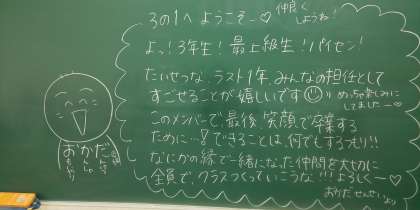 3の1へ ようこそー♡ 仲良くしようね!
よっ!3年生!最上級生!パイセン!
たいせつな、ラスト1年、みんなの担任として
すごせることが嬉しいです☺ めっちゃ楽しみにしてましたー♡
このメンバーで、最後、笑顔で卒業する
ために…!できることは、何でもするぞ!!
なにかの縁で一緒になった仲間を大切に
全員で、クラスつくっていこうな!!!よろしくー♡
おかだせんせいより
おかだ